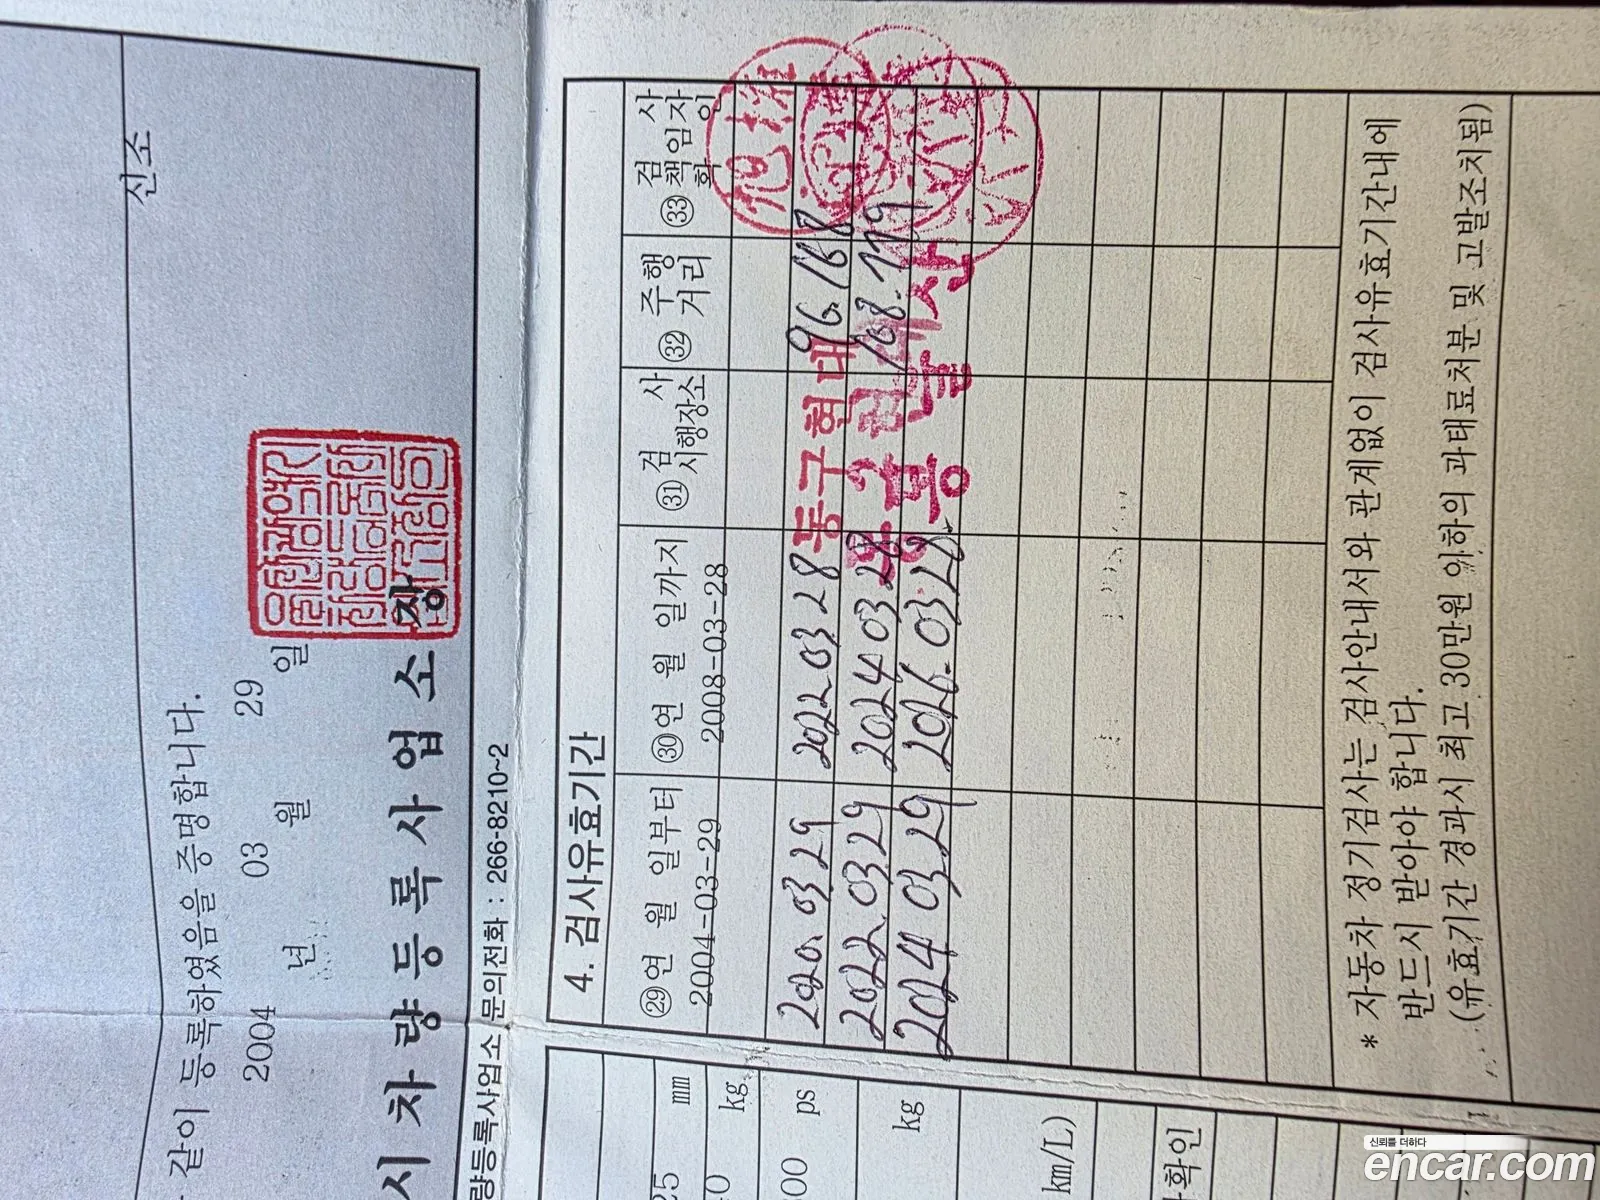 신소
같이 등록하였음을 증명합니다.
2004 년 03 월 29 일
시차량등록사업소장
량등록사업소 문의전화 : 266-8210~2
4. 검사유효기간
㉙연 월 일부터 ㉚연 월 일까지 ㉛검 사 시행장소 ㉜주행 거리 ㉝검 사 책임자 확 인
2004-03-29 2008-03-28
2020. 03. 29 2022. 03. 28 동구현대 96.168
2022. 03. 29 2024 03. 28 108.779
2024 03. 29 2026. 03. 28
* 자동차 정기검사는 검사안내서와 관계없이 검사유효기간내에
반드시 받아야 합니다.
(유효기간 경과시 최고 30만원 이하의 과태료처분 및 고발조치됨)
mm
kg
ps
kg
km/L)
확인
신뢰를 더하다
encar.com